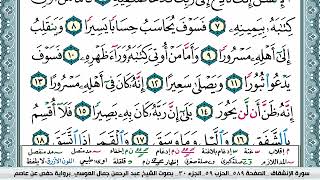 كِتَٰبَهُۥ بِيَمِينِهِۦ ٧ فَسَوْفَ يُحَاسَبُ حِسَابًا يَسِيرًا ٨ وَيَنقَلِبُ
إِلَىٰٓ أَهْلِهِۦ مَسْرُورًا ٩ وَأَمَّا مَنْ أُوتِيَ كِتَٰبَهُۥ وَرَآءَ ظَهْرِهِۦ ١٠ فَسَوْفَ
يَدْعُوا۟ ثُبُورًا ١١ وَيَصْلَىٰ سَعِيرًا ١٢ إِنَّهُۥ كَانَ فِىٓ أَهْلِهِۦ مَسْرُورًا ١٣
إِنَّهُۥ ظَنَّ أَن لَّن يَحُورَ ١٤ بَلَىٰٓ إِنَّ رَبَّهُۥ كَانَ بِهِۦ بَصِيرًا ١٥ فَلَآ أُقْسِمُ
بِٱلشَّفَقِ ١٦ وَٱلَّيْلِ وَمَا وَسَقَ ١٧ وَٱلْقَمَرِ إِذَا ٱتَّسَقَ ١٨
سورة الإنشقاق الصفحة ٥٨٩ الحزب ٥٩ الجزء ٣٠ بصوت الشيخ عبد الرحمن جمال الموسي برواية حفص عن عاصم